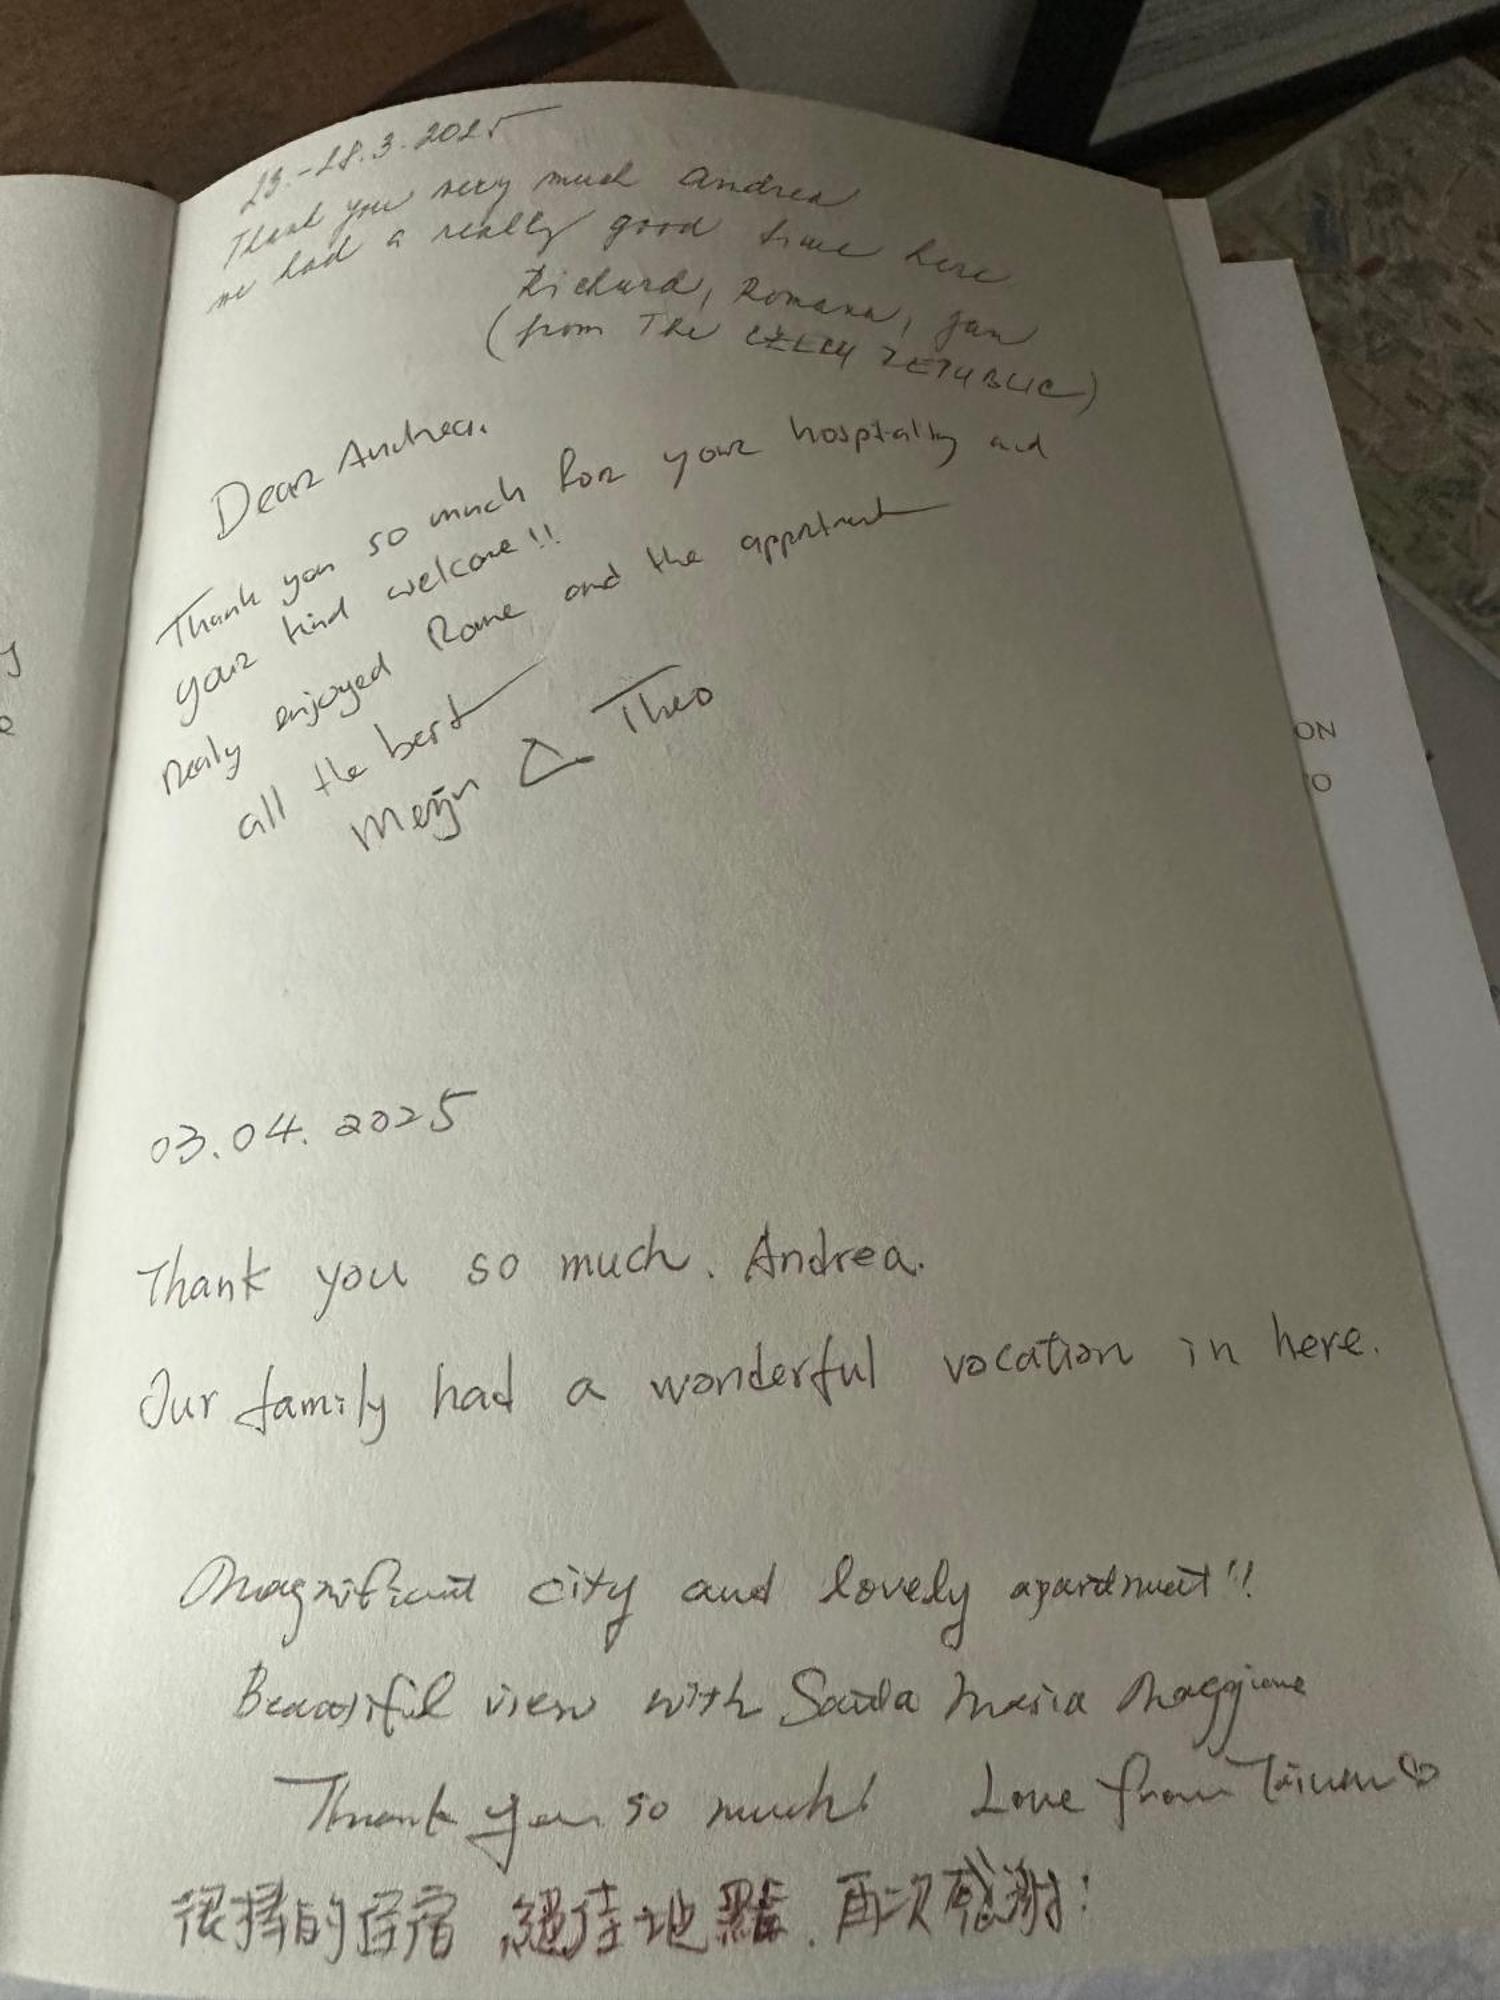 23.-28.3.2025
Thank you very much Andrea
we had a really good time here
Richard, Romana, Jan
(from The CZECH REPUBLIC)
Dear Andrea.
Thank you so much for your hospitality and
your kind welcome!!
Realy enjoyed Rome and the
all the best
Merijn & Theo
03.04.2025
Thank you so much. Andrea.
Our family had a wonderful vocation in here.
Magnificant city and lovely apartment!!
Beautiful view with Santa Maria Maggiore
Thank you so much! Love from Taiwan♡
很棒的住宿 絕佳地點. 再次感謝!
y
e
ON
O